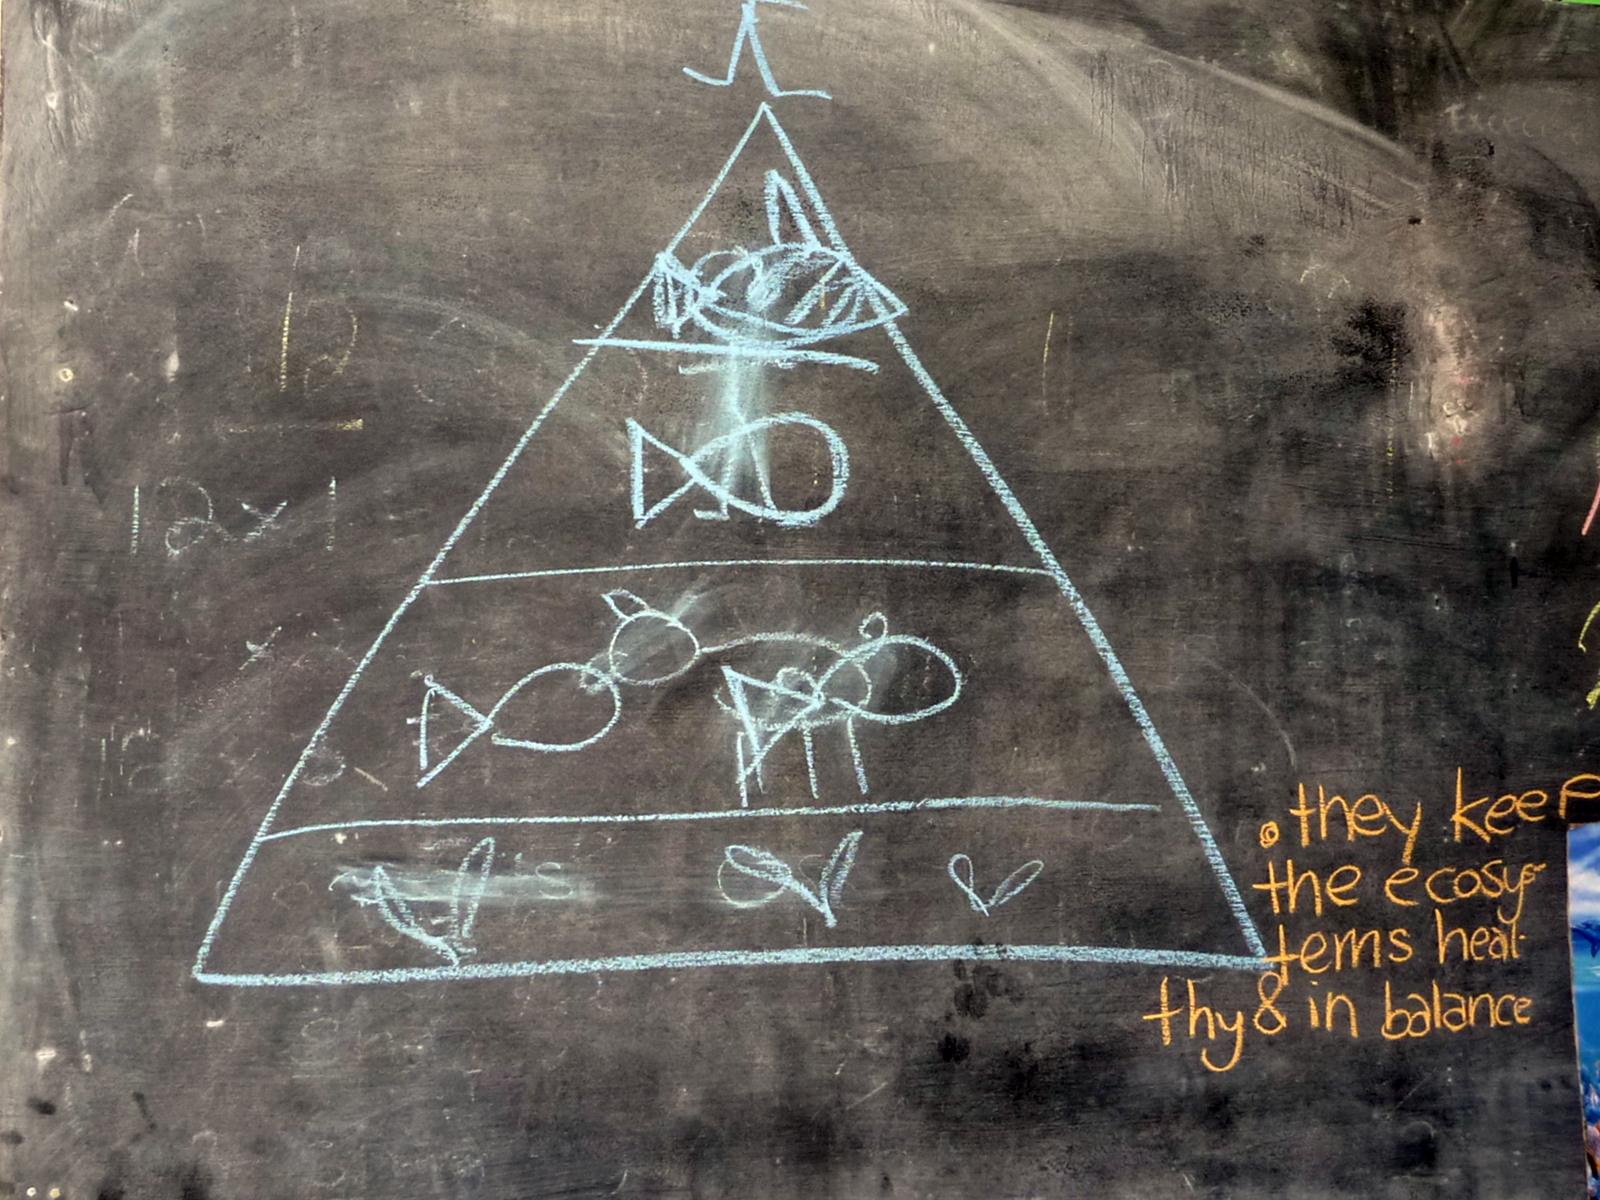 12 x 1
• they keep
the ecosys-
tems heal-
thy & in balance